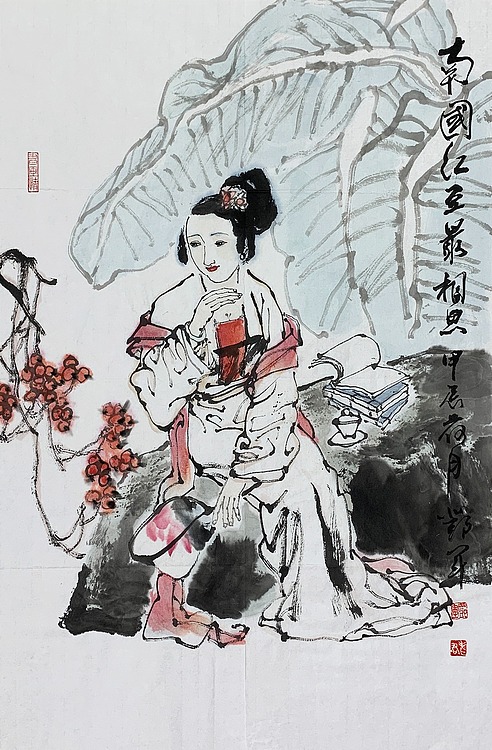 南國红豆最相思甲辰荷月